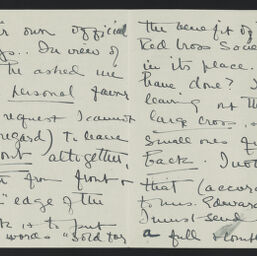 own official
In view of
he asked me
personal favour
request I cannot
regard) to leave
out altogether,
from front &
" edge of the
is to put
words "Sold for
the benefit of
Red Cross Socie
in its place.
have done?
leaving out the
large cross,
small ones
back.
that (accor
to Mrs. Edward
I must send
a full &